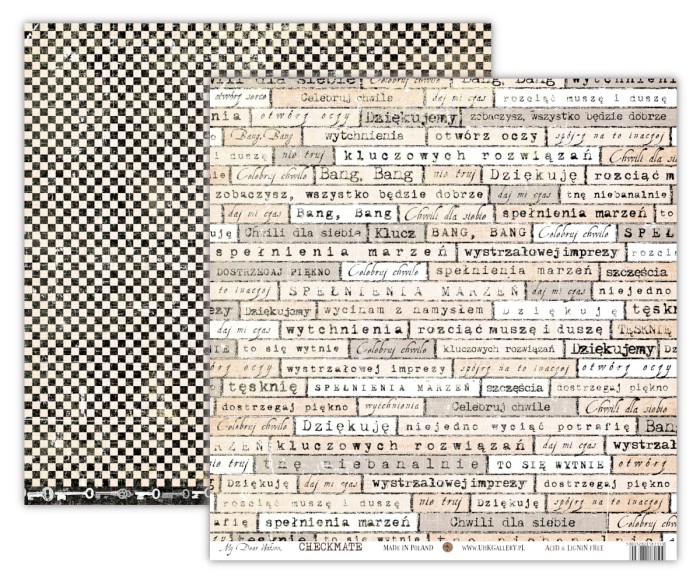 wili dla siebie! Celebruj chwile Bang, Bang wytchnieni
otwórz serce Celebruj chwile daj mi czas rozciąć muszę i duszę
nia otwórz oczy Dziękujemy zobaczysz, wszystko będzie dobrze
to Bang, Bang wytchnienia otwórz oczy spójrz na to inaczej
i duszę nie truj kluczowych rozwiązań Chwili dla si
ie Celebruj chwile Bang, Bang nie truj Dziękuję rozciąć m
zobaczysz, wszystko będzie dobrze daj mi czas tnę niebanalnie
daj mi czas Bang, Bang Chwili dla siebie spełnienia marzeń to
uję Chwili dla siebie Klucz BANG, BANG Celebruj chwile SPEŁ
spełnienia marzeń wystrzałowej imprezy rozci
DOSTRZEGAJ PIĘKNO Celebruj chwile spełnienia marzeń szczęścia
to inaczej SPEŁNIENIA MARZEŃ daj mi czas niejedno
ezy Dziękujemy wycinam z namysłem Dziękuję tęskn
daj mi czas wytchnienia rozciąć muszę i duszę TĘSKNIĘ
to się wytnie Celebruj chwile kluczowych rozwiązań Dziękujemy Dz
órz wystrzałowej imprezy spójrz na to inaczej otwórz oczy
tęsknię SPEŁNIENIA MARZEŃ szczęścia dostrzegaj piękno
dostrzegaj piękno wytchnienia Celebruj chwile Chwili dla siebie
Celebruj chwile Dziękuję niejedno wyciąć potrafię Ban
RZEŃ kluczowych rozwiązań daj mi czas wystrzał
nie truj tnę niebanalnie TO SIĘ WYTNIE otwórz
Dziękuję daj mi czas wystrzałowej imprezy dostrzegaj piękno
rozciąć muszę i duszę nie truj Dziękuję spójrz na to inaczej
afię spełnienia marzeń Chwili dla siebie Celebruj chwi
My Dear Watson CHECKMATE MADE IN POLAND WWW.UHKGALLERY.PL ACID & LIGNIN FREE